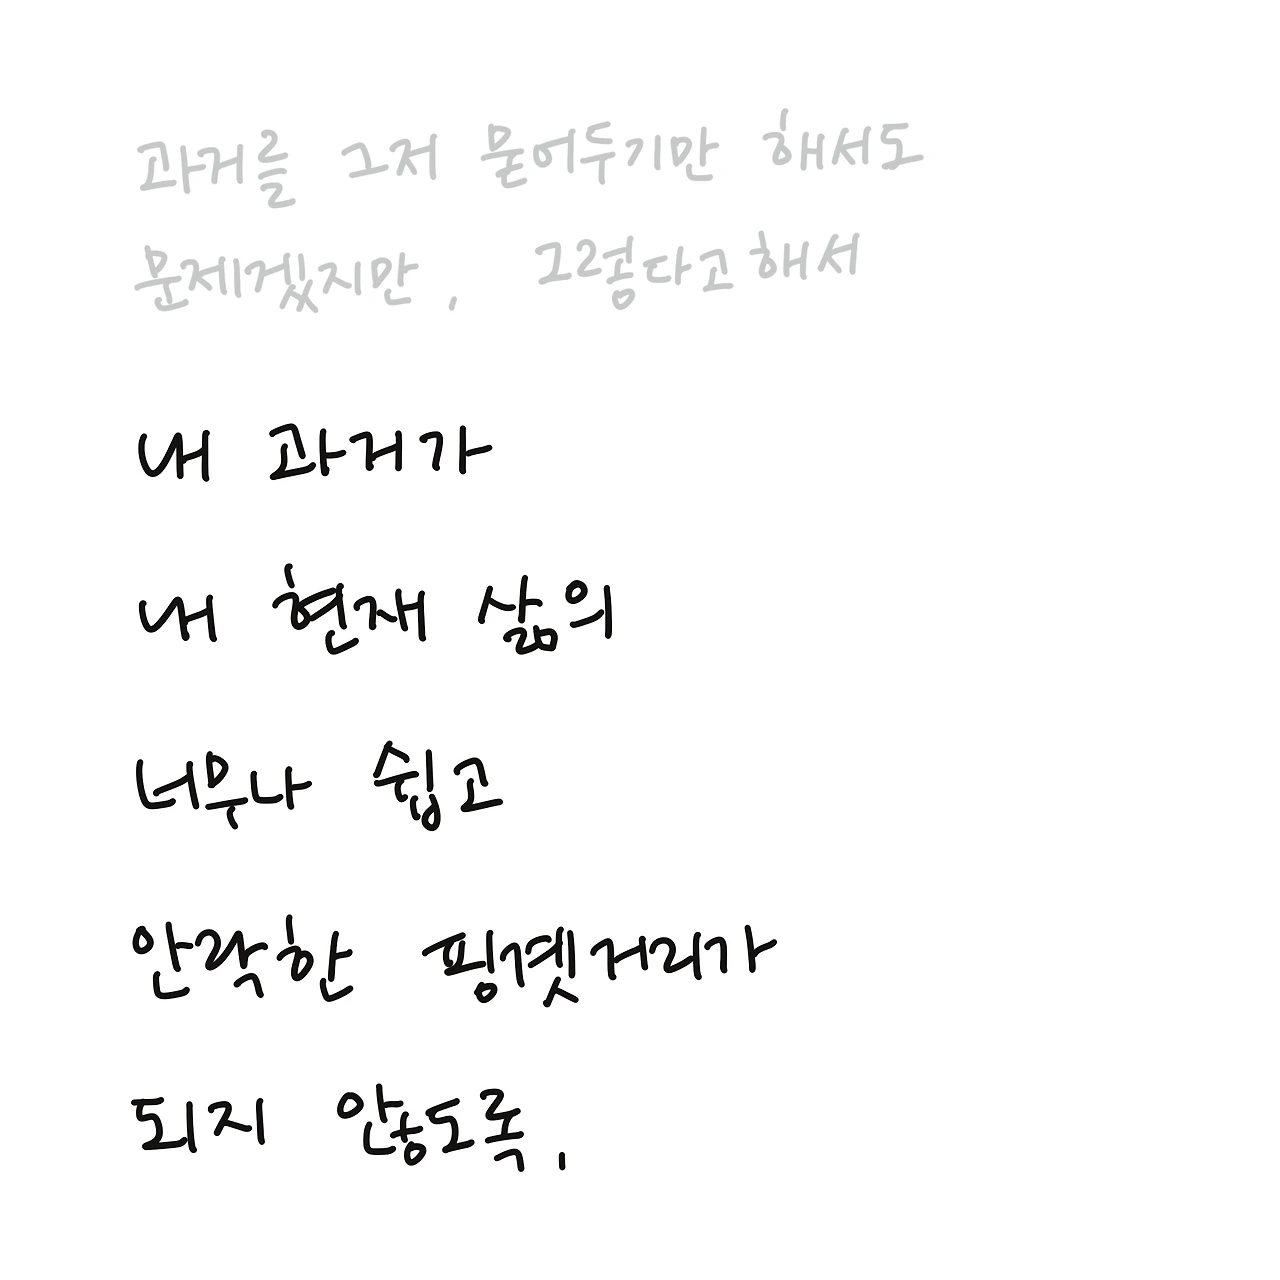 과거를 그저 묻어두기만 해서도
문제겠지만, 그렇다고해서
내 과거가
내 현재 삶의
너무나 쉽고
안락한 핑곗거리가
되지 않도록.